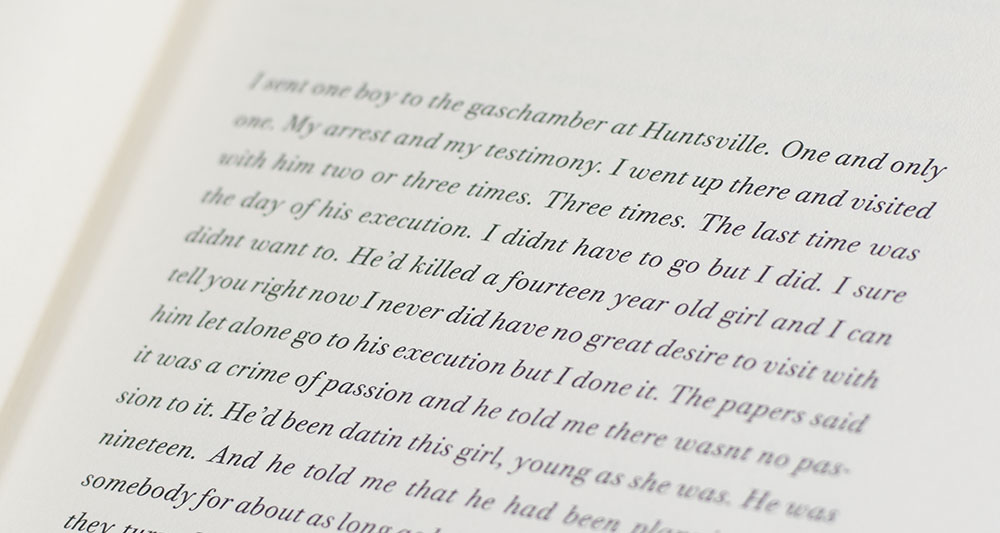 I sent one boy to the gaschamber at Huntsville. One and only
one. My arrest and my testimony. I went up there and visited
with him two or three times. Three times. The last time was
the day of his execution. I didnt have to go but I did. I sure
didnt want to. He’d killed a fourteen year old girl and I can
tell you right now I never did have no great desire to visit with
him let alone go to his execution but I done it. The papers said
it was a crime of passion and he told me there wasnt no pas-
sion to it. He’d been datin this girl, young as she was. He was
nineteen. And he told me that he had been
somebody for about as long as
they